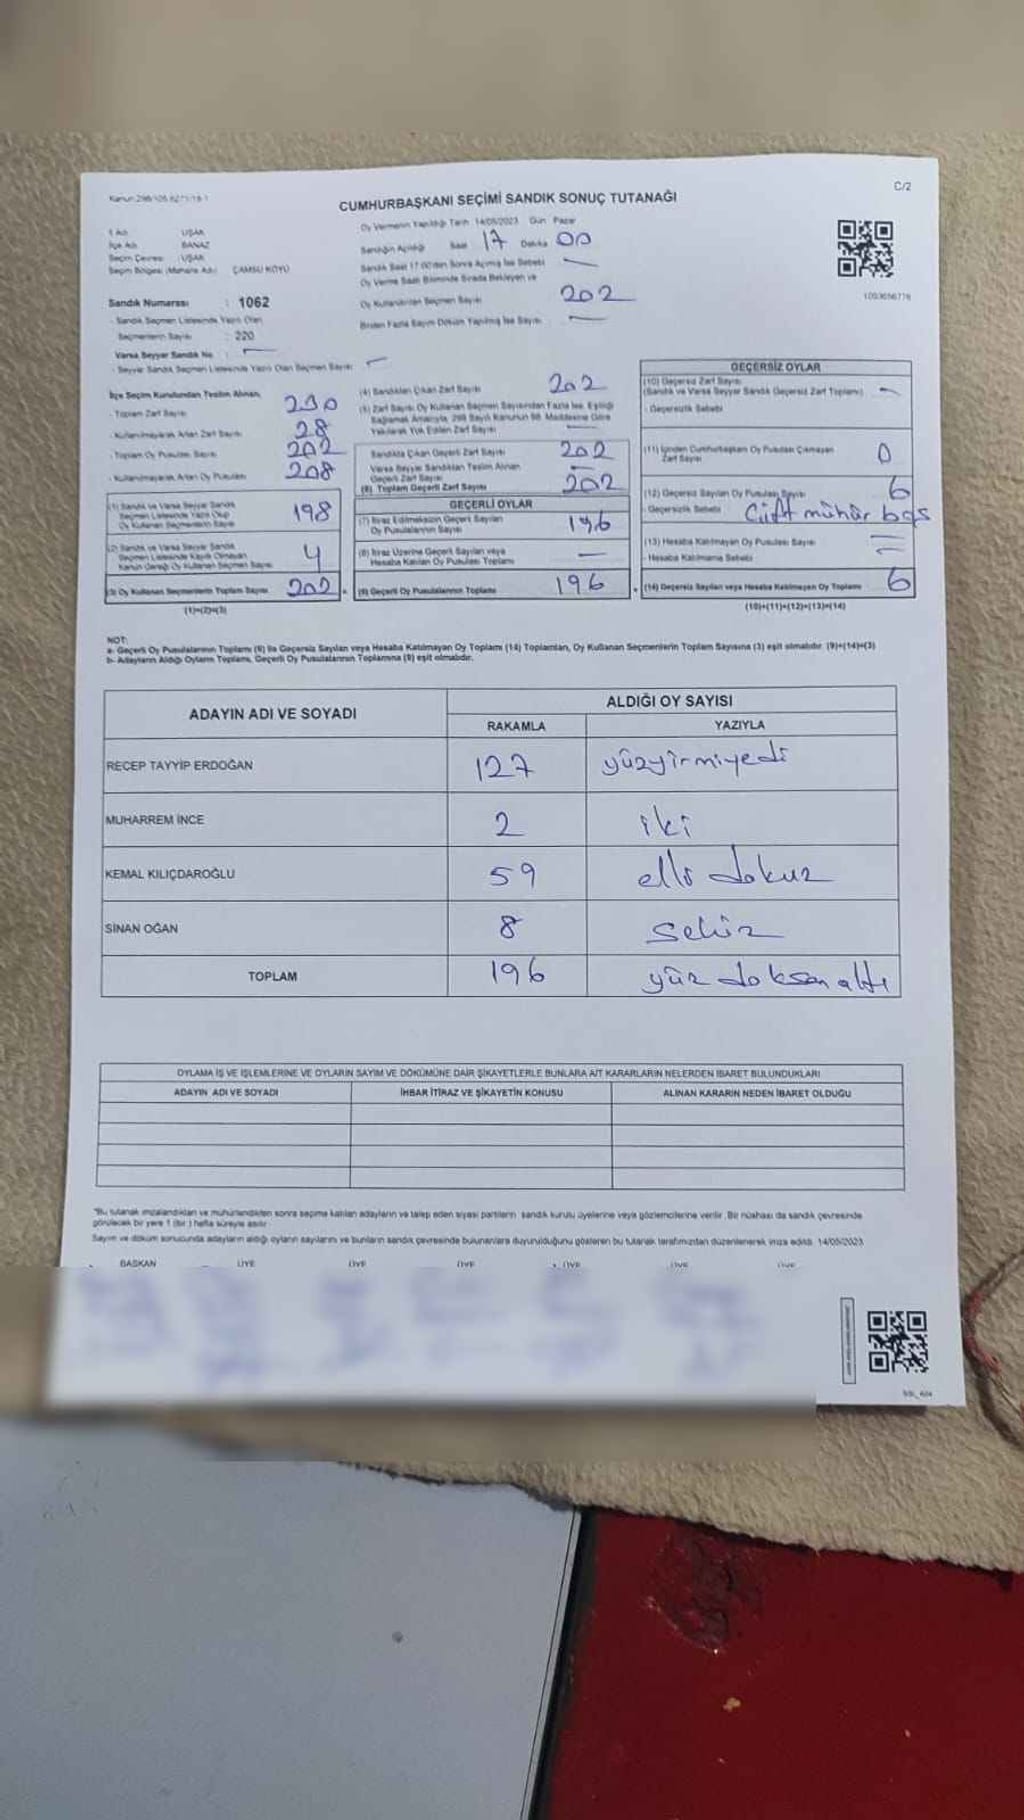 C/2
CUMHURBAŞKANI SEÇİMİ SANDIK SONUÇ TUTANAĞI
İl Adı UŞAK
İlçe Adı BANAZ
Seçim Çevresi UŞAK
Seçim Bölgesi (Muhtarlık Adı) ÇAMSU KÖYÜ
Oy Vermenin Yapıldığı Tarih 14/05/2023 Gün Pazar
Sandığın Açıldığı Saat 17 Dakika 00
Sandık Saat 17:00'den Sonra Açılmış İse Sebebi —
Oy Verme Saati Bitiminde Sırada Bekleyen ve
Oy Kullandırılan Seçmen Sayısı 202
Birden Fazla Sayım Döküm Yapılmış İse Sayısı —
Sandık Numarası : 1062
- Sandık Seçmen Listesinde Yazılı Olan
Seçmenlerin Sayısı : 220
Varsa Seyyar Sandık No : —
- Seyyar Sandık Seçmen Listesinde Yazılı Olan Seçmen Sayısı —
İlçe Seçim Kurulundan Teslim Alınan,
- Toplam Zarf Sayısı 230
- Kullanılmayarak Artan Zarf Sayısı 28
- Toplam Oy Pusulası Sayısı 202
- Kullanılmayarak Artan Oy Pusulası 208
(1) Sandık ve Varsa Seyyar Sandık
Seçmen Listesinde Yazılı Olup
Oy Kullanan Seçmenlerin Sayısı 198
(2) Sandık ve Varsa Seyyar Sandık
Seçmen Listesinde Kayıtlı Olmayan
Kanun Gereği Oy Kullanan Seçmen Sayısı 4
(3) Oy Kullanan Seçmenlerin Toplam Sayısı 202
(1)+(2)=(3)
(4) Sandıktan Çıkan Zarf Sayısı 202
(5) Zarf Sayısı Oy Kullanan Seçmen Sayısından Fazla İse, Eşitliği
Sağlamak Amacıyla, 298 Sayılı Kanunun 98. Maddesine Göre
Yakılarak Yok Edilen Zarf Sayısı —
Sandıkta Çıkan Geçerli Zarf Sayısı 202
Varsa Seyyar Sandıktan Teslim Alınan
Geçerli Zarf Sayısı —
(6) Toplam Geçerli Zarf Sayısı 202
GEÇERLİ OYLAR
(7) İtiraz Edilmeksizin Geçerli Sayılan
Oy Pusulalarının Sayısı 196
(8) İtiraz Üzerine Geçerli Sayılan veya
Hesaba Katılan Oy Pusulası Toplamı —
(9) Geçerli Oy Pusulalarının Toplamı 196
GEÇERSİZ OYLAR
(10) Geçersiz Zarf Sayısı
(Sandık ve Varsa Seyyar Sandık Geçersiz Zarf Toplamı) —
- Geçersizlik Sebebi
(11) İçinden Cumhurbaşkanı Oy Pusulası Çıkmayan
Zarf Sayısı 0
(12) Geçersiz Sayılan Oy Pusulası Sayısı 6
- Geçersizlik Sebebi Çift mühür bas
(13) Hesaba Katılmayan Oy Pusulası Sayısı —
- Hesaba Katılmama Sebebi —
(14) Geçersiz Sayılan veya Hesaba Katılmayan Oy Toplamı 6
(10)+(11)+(12)+(13)=(14)
NOT:
a- Geçerli Oy Pusulalarının Toplamı (9) ile Geçersiz Sayılan veya Hesaba Katılmayan Oy Toplamı (14) Toplamları, Oy Kullanan Seçmenlerin Toplam Sayısına (3) eşit olmalıdır. (9)+(14)=(3)
b- Adayların Aldığı Oyların Toplamı, Geçerli Oy Pusulalarının Toplamına (9) eşit olmalıdır.
ADAYIN ADI VE SOYADI ALDIĞI OY SAYISI
RAKAMLA YAZIYLA
RECEP TAYYİP ERDOĞAN 127 yüzyirmiyedi
MUHARREM İNCE 2 iki
KEMAL KILIÇDAROĞLU 59 elli dokuz
SİNAN OĞAN 8 sekiz
TOPLAM 196 yüz doksan altı
OYLAMA İŞ VE İŞLEMLERİNE VE OYLARIN SAYIM VE DÖKÜMÜNE DAİR ŞİKAYETLERLE BUNLARA AİT KARARLARIN NELERDEN İBARET BULUNDUKLARI
ADAYIN ADI VE SOYADI İHBAR İTİRAZ VE ŞİKAYETİN KONUSU ALINAN KARARIN NEDEN İBARET OLDUĞU
"Bu tutanak imzalandıktan ve mühürlendikten sonra seçime katılan adayların ve talep eden siyasi partilerin sandık kurulu üyelerine veya gözlemcilerine verilir. Bir nüshası da sandık çevresinde
görülecek bir yere 1 (bir) hafta süreyle asılır.
Sayım ve döküm sonucunda adayların aldığı oyların sayılarını ve bunların sandık çevresinde bulunanlara duyurulduğunu gösteren bu tutanak tarafımızdan düzenlenerek imza edildi. 14/05/2023
BAŞKAN ÜYE ÜYE ÜYE ÜYE ÜYE ÜYE